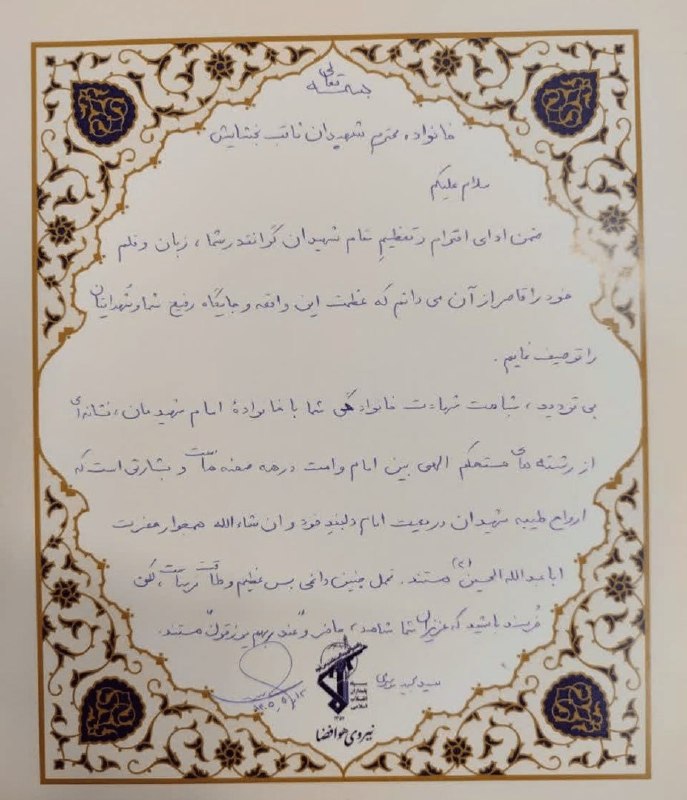 بسمه تعالی
خانواده محترم شهیدان ثاقب بخشایش
سلام علیکم
ضمن ادای احترام و تعظیم مقام شهیدان گرانقدر شما، زبان و قلم
خود را قاصر از آن می دانم که عظمت این واقعه و جایگاه رفیع شما و شهدایتان
را توصیف نمایم.
بی تردید، شباهت شهادت خانوادگی شما با خانوادهٔ امام شهیدمان، نشانه ای
از رشته های مستحکم الهی بین امام و امت در همه صحنه هاست و بشارتی است که
ارواح طیبه شهیدان در معیت امام دلبند خود و ان شاءالله همجوار حضرت
اباعبدالله الحسین (ع) هستند. تحمل چنین داغی بس عظیم و طاقت فرساست، لکن
خُرسند باشید که عزیزان شما شاهد، حاضر و "عند ربهم یرزقون" هستند.
سید مجید
سپاه
پاسداران
انقلاب
اسلامی
۱۳۵۷
نیروی هوافضا